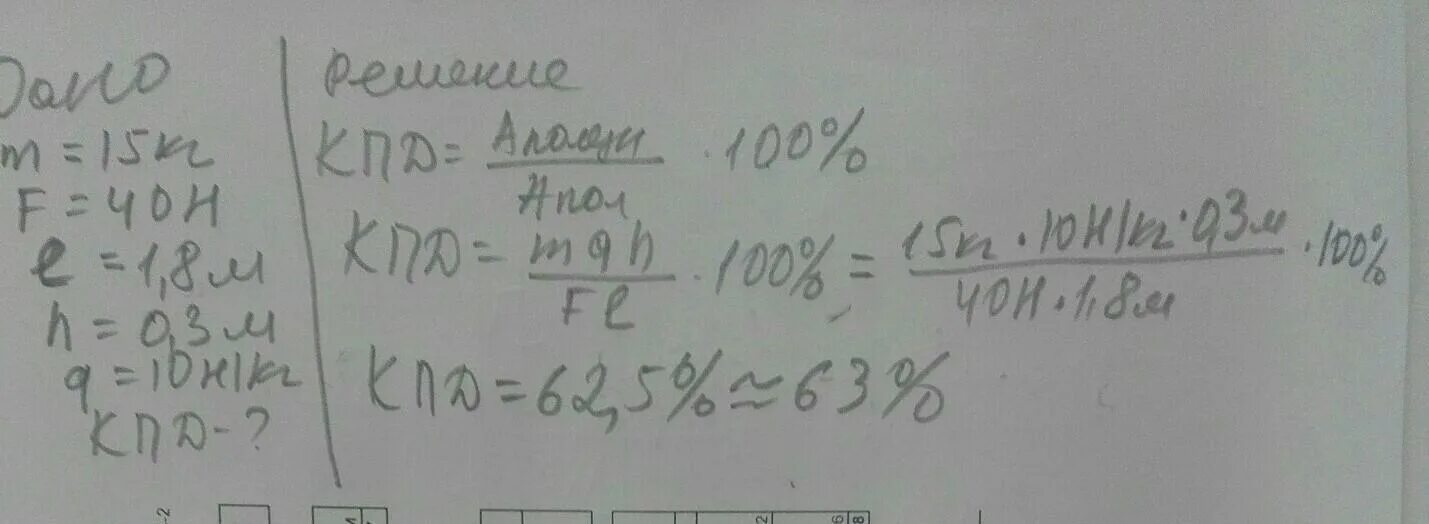 Дано
m = 15кг
F = 40Н
l = 1,8м
h = 0,3м
g = 10Н/кг
КПД - ?
Решение
КПД = Аполезн / Апол · 100%
КПД = mgh / Fl · 100% = 15кг · 10Н/кг · 0,3м / 40Н · 1,8м · 100%
КПД = 62,5% ≈ 63%
-2
2
6
8